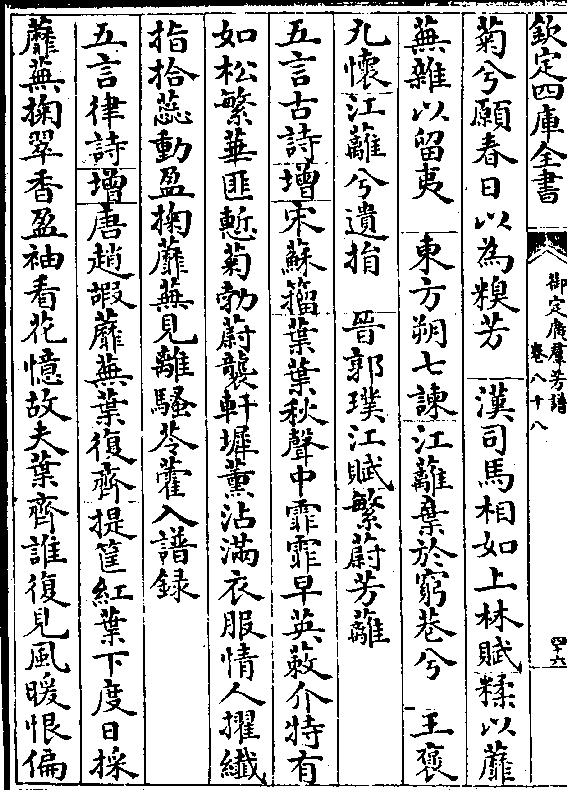 欽定四庫全書
御定廣羣芳譜
卷八十八
四十六
菊兮願春日以為糗芳　漢司馬相如上林賦糅以蘼
蕪雜以留夷　東方朔七諫江蘺棄於窮巷兮　王褒
九懷江蘺兮遺捐　晉郭璞江賦繁蔚芳蘺
五言古詩增宋蘇籀葉葉秋聲中霏霏早英蔌介特有
如松繁華匪慙菊勃蔚襲軒墀薰沾滿衣服情人擢纖
指拾蕊動盈掬蘼蕪見離騷苓藿入譜録
五言律詩增唐趙嘏蘼蕪葉復齊提筐紅葉下度日採
蘼蕪掬翠香盈袖看花憶故夫葉齊誰復見風暖恨偏